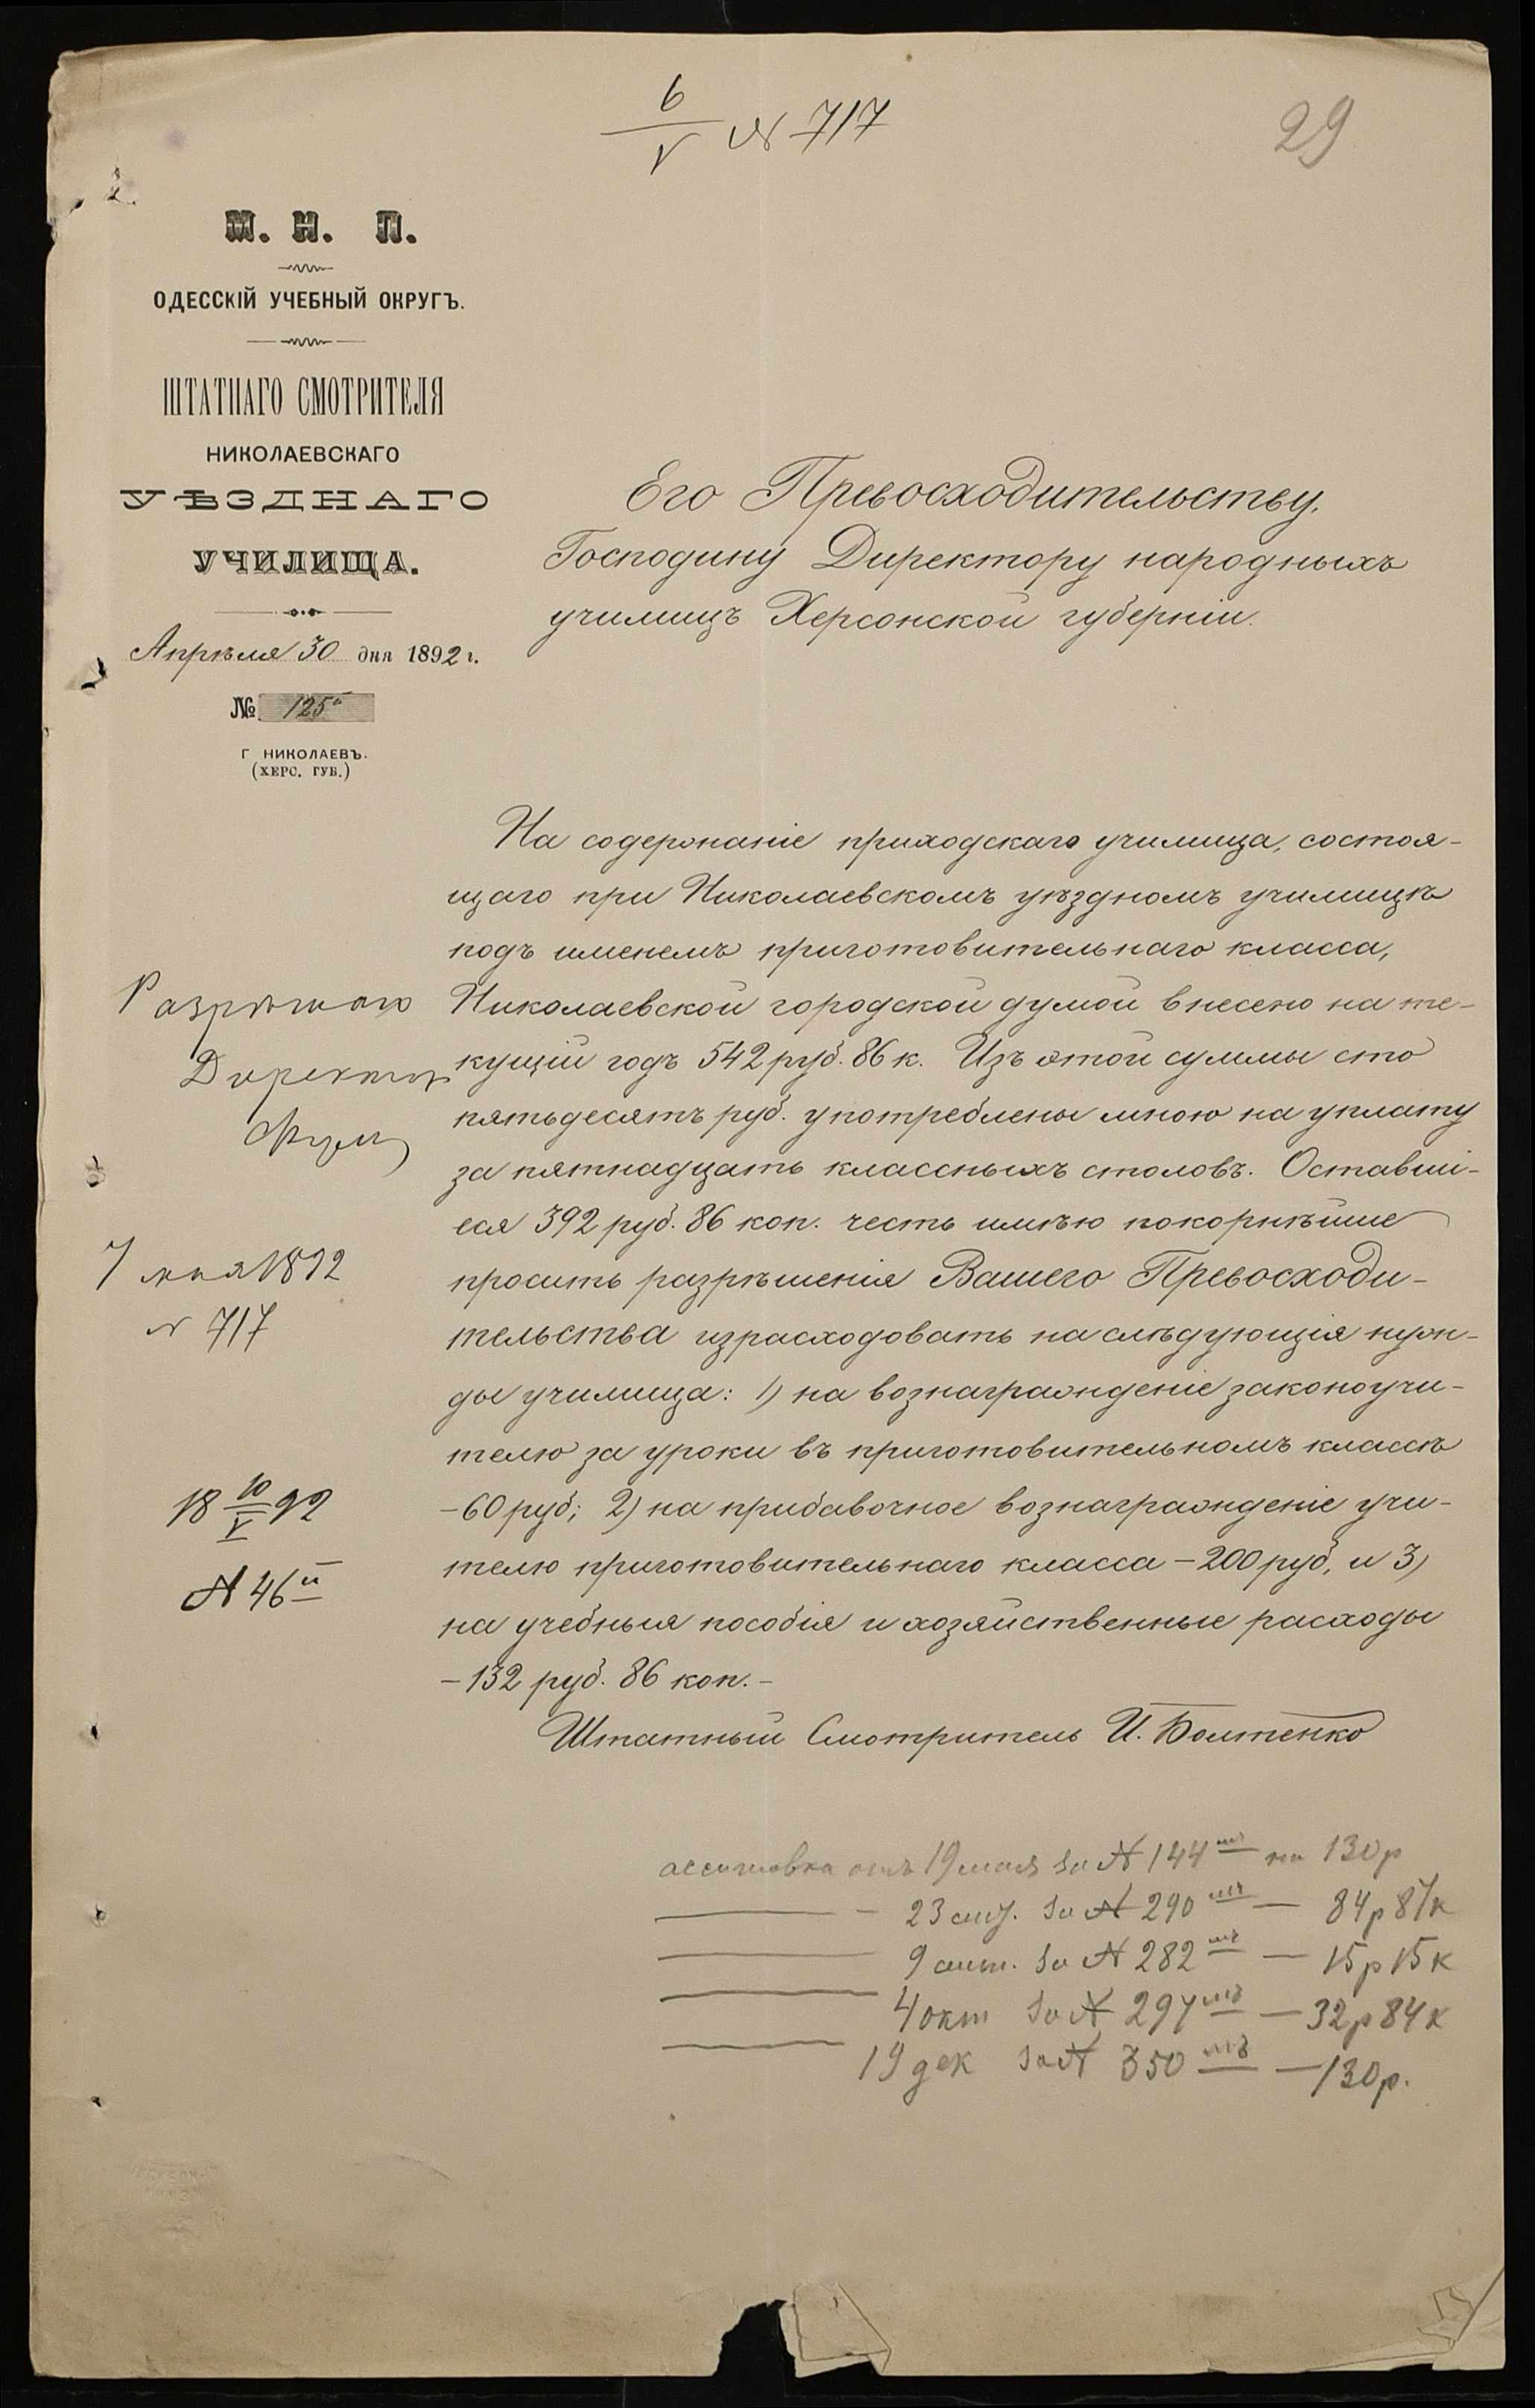 6/V № 717
29
М. Н. П.
ОДЕССКІЙ УЧЕБНЫЙ ОКРУГЪ.
ШТАТНАГО СМОТРИТЕЛЯ
НИКОЛАЕВСКАГО
УѢЗДНАГО
УЧИЛИЩА.
Апрѣля 30 дня 1892 г.
№ 125
Г НИКОЛАЕВЪ.
(ХЕРС. ГУБ.)
Его Превосходительству,
Господину Директору народныхъ
училищъ Херсонской губерніи.
На содержаніе приходскаго училища, состоя-
щаго при Николаевскомъ уѣздномъ училищѣ
подъ именемъ приготовительнаго класса,
Николаевской городской думой внесено на те-
кущій годъ 542 руб. 86 к. Изъ этой суммы сто
пятьдесятъ руб. употреблены мною на уплату
за пятнадцать классныхъ столовъ. Оставші-
еся 392 руб. 86 коп. честь имѣю покорнѣйше
просить разрѣшенія Вашего Превосходи-
тельства израсходовать на слѣдующія нуж-
ды училища: 1) на вознагражденіе законоучи-
телю за уроки въ приготовительномъ классѣ
-60 руб; 2) на прибавочное вознагражденіе учи-
телю приготовительнаго класса - 200 руб, и 3)
на учебныя пособія и хозяйственные расходы
-132 руб. 86 коп. -
Штатный Смотритель И. Болтенко
Разрѣшаю
Директор
7 мая 1892
№ 717
18 10/V 92
№ 46
ассигновка отъ 19 мая за № 144мъ на 130 р
23 авг. за № 290мъ — 84 р 87 к
9 сент. за № 282мъ — 15 р 15 к
4 окт за № 297мъ — 32 р 84 к
19 дек за № 350мъ — 130 р.